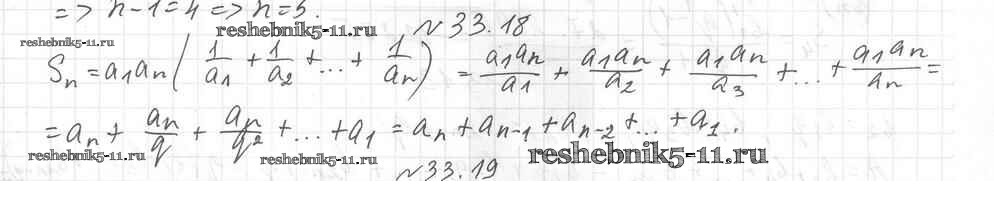 => n-1=4 => n=5.
reshebnik5-11.ru
№33.18
reshebnik5-11.ru
Sₙ = a₁aₙ(1/a₁ + 1/a₂ + ... + 1/aₙ) = a₁aₙ/a₁ + a₁aₙ/a₂ + a₁aₙ/a₃ + ... + a₁aₙ/aₙ =
= aₙ + aₙ/q + aₙ/q² + ... + a₁ = aₙ + aₙ₋₁ + aₙ₋₂ + ... + a₁.
reshebnik5-11.ru
reshebnik5-11.ru
reshebnik5-11.ru
№33.19